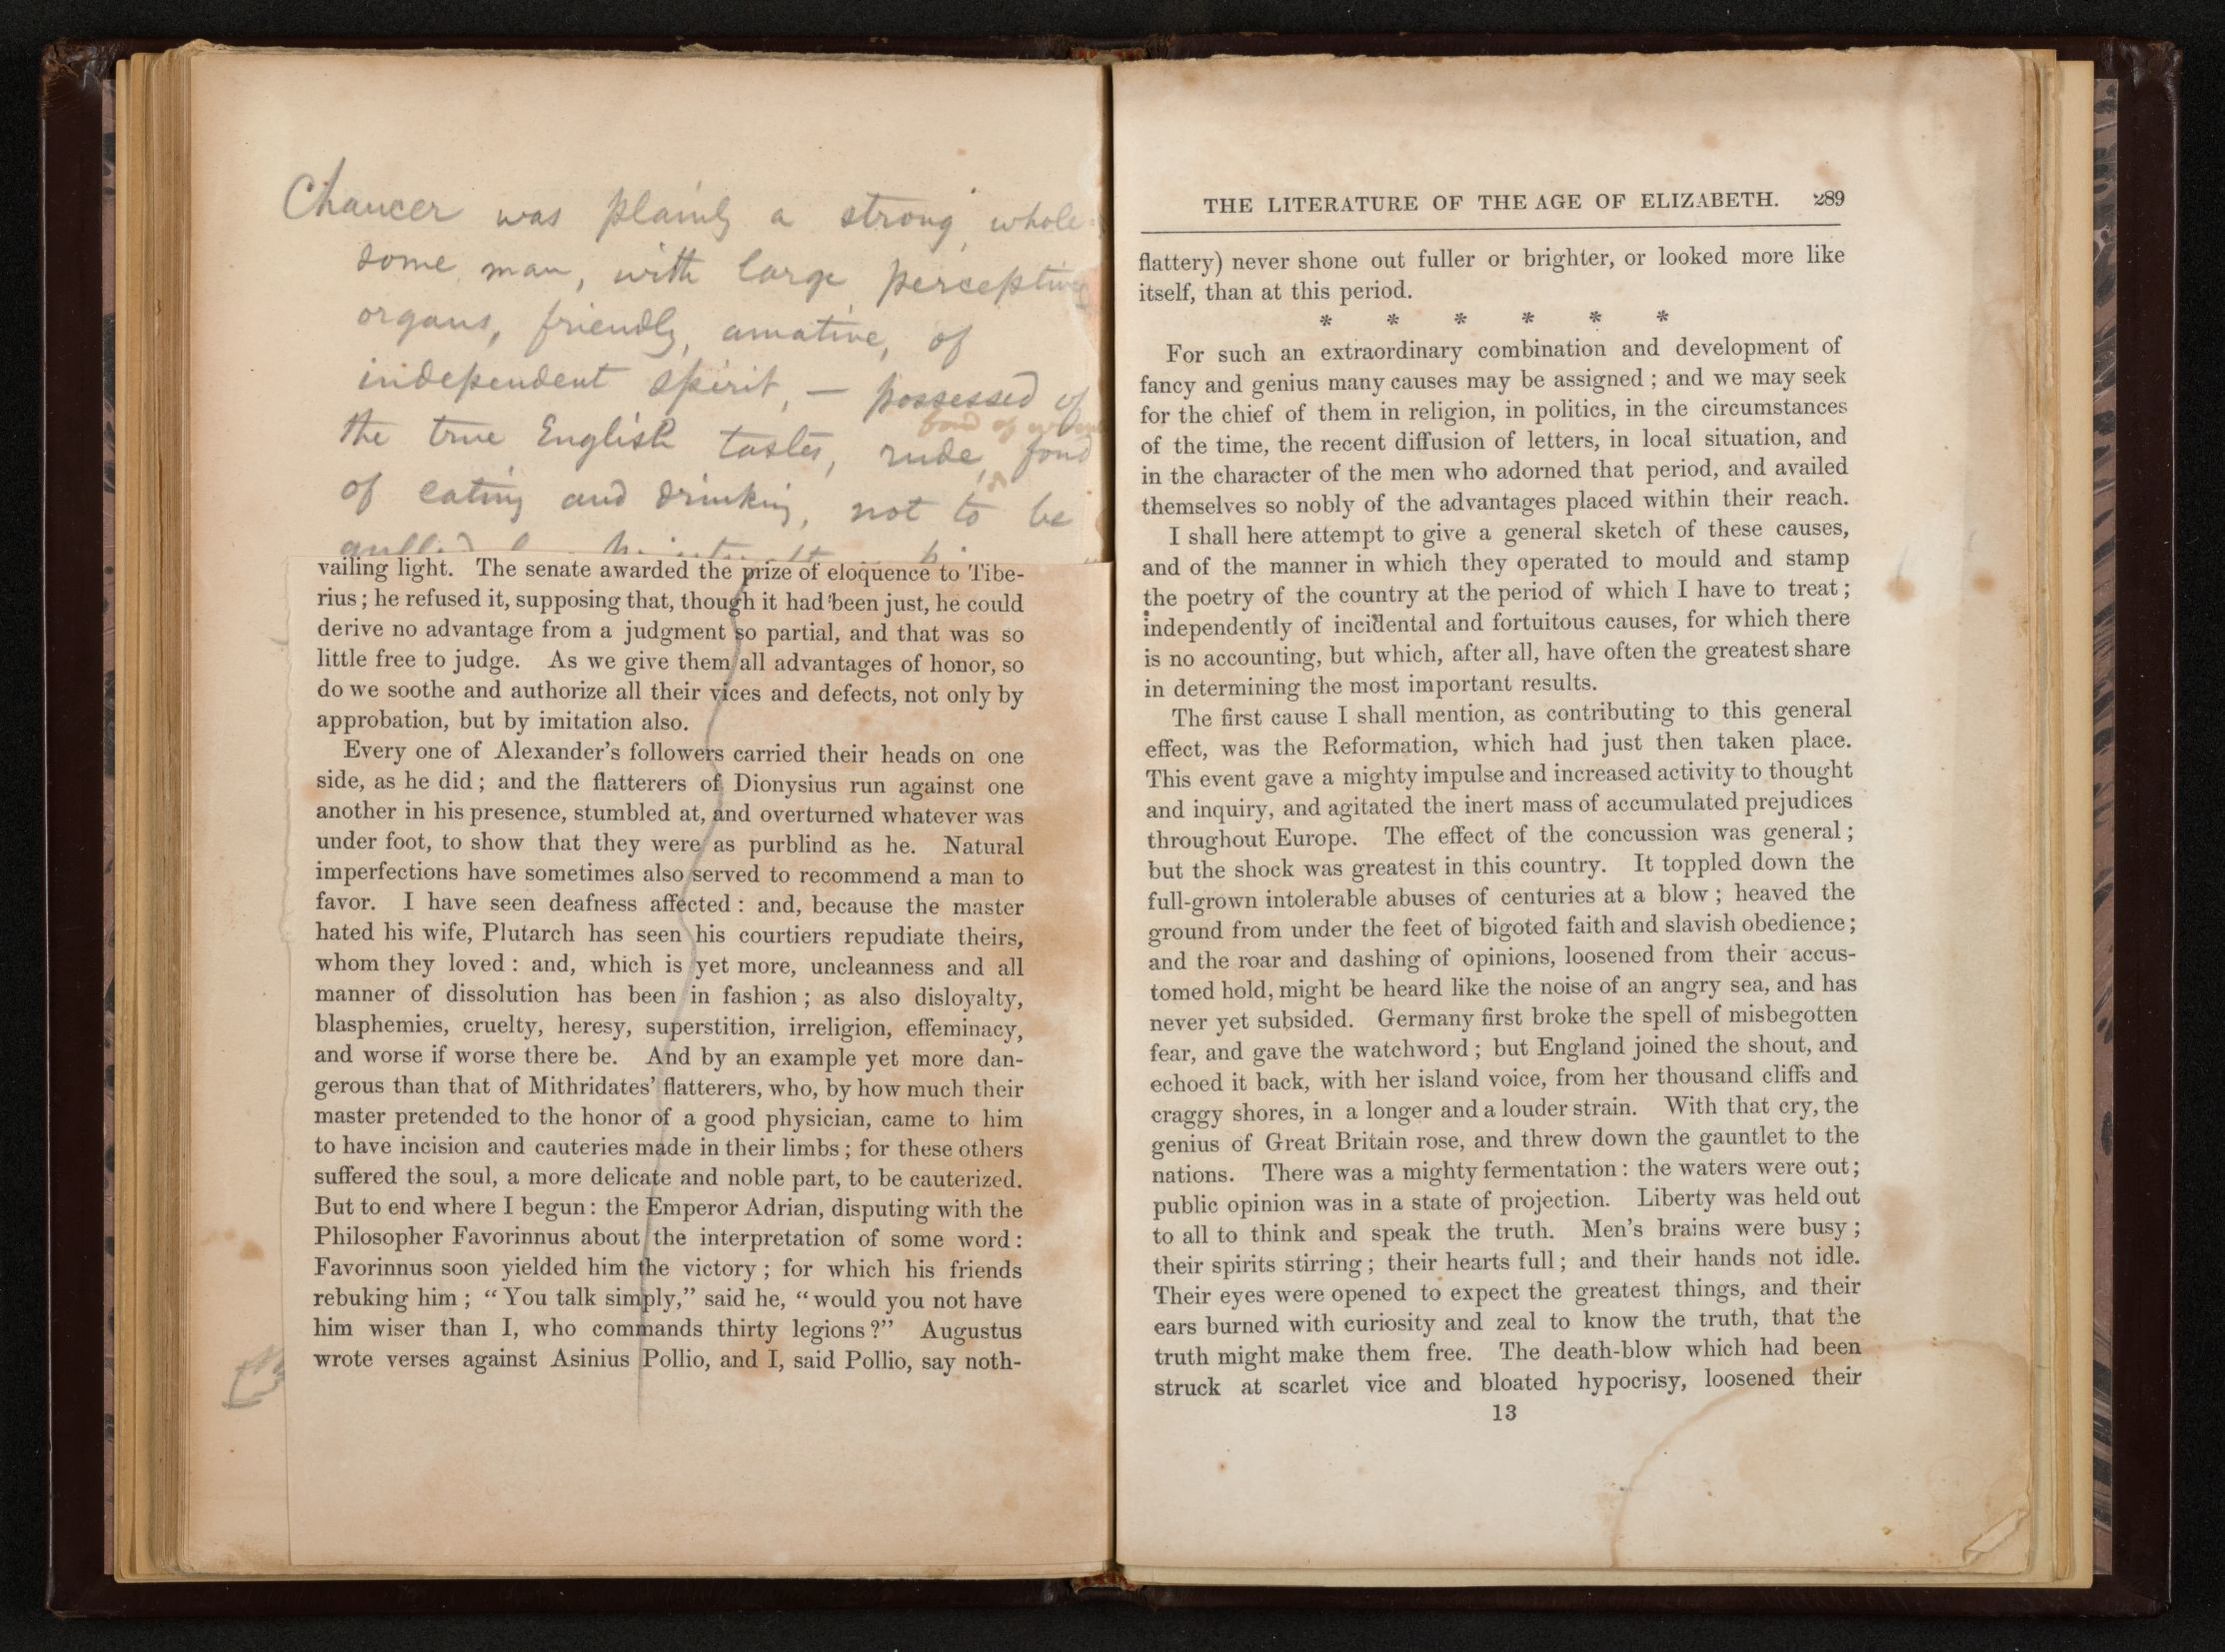 Chaucer was plainly a strong, whole-
some man, with large perceptive
organs, friendly, amative, of
independent spirit, — possessed of
the true English tastes, rude, fond
of eating and drinking, not to be
vailing light. The senate awarded the prize of eloquence to Tibe-
rius; he refused it, supposing that, though it had been just, he could
derive no advantage from a judgment so partial, and that was so
little free to judge. As we give them all advantages of honor, so
do we soothe and authorize all their vices and defects, not only by
approbation, but by imitation also.
Every one of Alexander's followers carried their heads on one
side, as he did; and the flatterers of Dionysius run against one
another in his presence, stumbled at, and overturned whatever was
under foot, to show that they were as purblind as he. Natural
imperfections have sometimes also served to recommend a man to
favor. I have seen deafness affected: and, because the master
hated his wife, Plutarch has seen his courtiers repudiate theirs,
whom they loved: and, which is yet more, uncleanness and all
manner of dissolution has been in fashion; as also disloyalty,
blasphemies, cruelty, heresy, superstition, irreligion, effeminacy,
and worse if worse there be. And by an example yet more dan-
gerous than that of Mithridates' flatterers, who, by how much their
master pretended to the honor of a good physician, came to him
to have incision and cauteries made in their limbs; for these others
suffered the soul, a more delicate and noble part, to be cauterized.
But to end where I begun: the Emperor Adrian, disputing with the
Philosopher Favorinnus about the interpretation of some word:
Favorinnus soon yielded him the victory; for which his friends
rebuking him; "You talk simply," said he, "would you not have
him wiser than I, who commands thirty legions?" Augustus
wrote verses against Asinius Pollio, and I, said Pollio, say noth-
THE LITERATURE OF THE AGE OF ELIZABETH. 289
flattery) never shone out fuller or brighter, or looked more like
itself, than at this period.
* * * * * *
For such an extraordinary combination and development of
fancy and genius many causes may be assigned; and we may seek
for the chief of them in religion, in politics, in the circumstances
of the time, the recent diffusion of letters, in local situation, and
in the character of the men who adorned that period, and availed
themselves so nobly of the advantages placed within their reach.
I shall here attempt to give a general sketch of these causes,
and of the manner in which they operated to mould and stamp
the poetry of the country at the period of which I have to treat;
independently of incidental and fortuitous causes, for which there
is no accounting, but which, after all, have often the greatest share
in determining the most important results.
The first cause I shall mention, as contributing to this general
effect, was the Reformation, which had just then taken place.
This event gave a mighty impulse and increased activity to thought
and inquiry, and agitated the inert mass of accumulated prejudices
throughout Europe. The effect of the concussion was general;
but the shock was greatest in this country. It toppled down the
full-grown intolerable abuses of centuries at a blow; heaved the
ground from under the feet of bigoted faith and slavish obedience;
and the roar and dashing of opinions, loosened from their accus-
tomed hold, might be heard like the noise of an angry sea, and has
never yet subsided. Germany first broke the spell of misbegotten
fear, and gave the watchword; but England joined the shout, and
echoed it back, with her island voice, from her thousand cliffs and
craggy shores, in a longer and a louder strain. With that cry, the
genius of Great Britain rose, and threw down the gauntlet to the
nations. There was a mighty fermentation: the waters were out;
public opinion was in a state of projection. Liberty was held out
to all to think and speak the truth. Men's brains were busy;
their spirits stirring; their hearts full; and their hands not idle.
Their eyes were opened to expect the greatest things, and their
ears burned with curiosity and zeal to know the truth, that the
truth might make them free. The death-blow which had been
struck at scarlet vice and bloated hypocrisy, loosened their
13